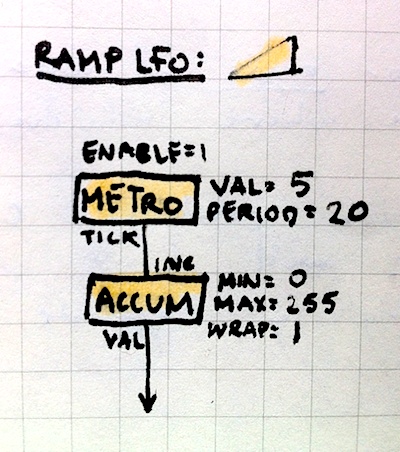 RAMP LFO:
ENABLE=1
METRO
VAL= 5
PERIOD= 20
TICK
INC
ACCUM
MIN= 0
MAX= 255
WRAP= 1
VAL